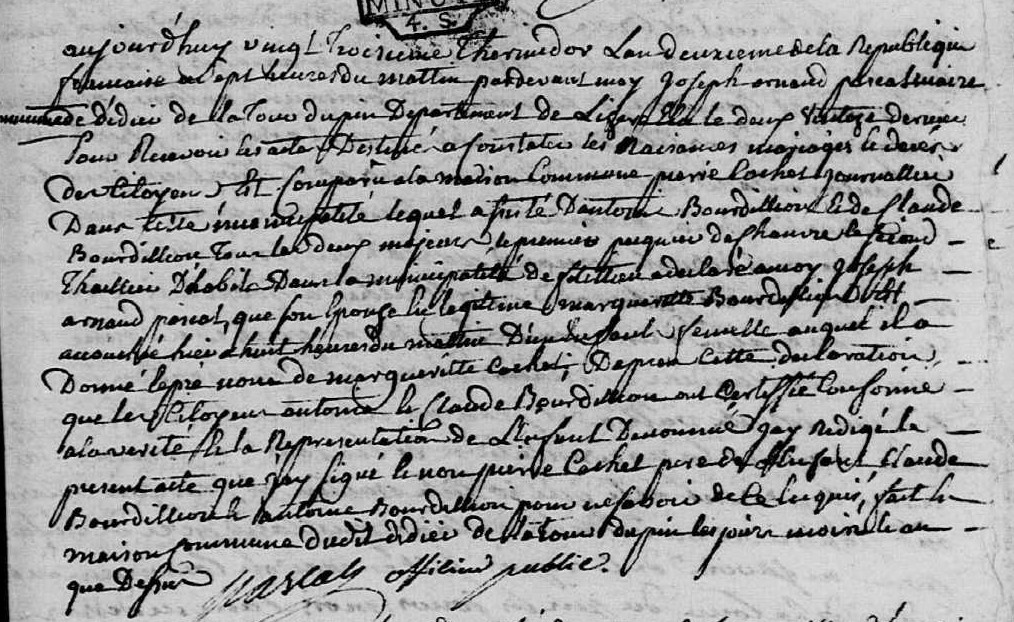 MINUT
4. S.
aujourd'huy vingt troisieme thermidor lan deuxieme de la Republique
francaise a sept heures du mattin pardevant moy Joseph arnaud pascal maire
de dédiée de la Tour du pin Departement de Lizere Elu le deux
Pour Recevoir les actes Destiné a constater les Naisances mariages le deces
des Citoyens Est comparu a la maison Commune pierre Cochet journallié
Dans cette municipalité lequel assisté Dantoine Bourdillion & de Claude
Bourdillion tous les deux majeurs le premier de Chanvre le segond
D'habits Dans la municipalité de a declaré a moy Joseph
arnaud pascal, que son Epouse le legitime marguerite Bourdillion Est
accouché hier a huit heures du mattin D'un Enfant femelle auquel il a
Donné le pré nom de marguerite Cochet, Dapres cette declaration
que les Citoyens antoine & Claude Bourdillion ont certiffié Conforme
a la verité & la Representation de L'enfant Denommé jay redigé le
present acte que jay signé le non pierre Cochet pere de Claude
Bourdillion & antoine Bourdillion pour ne savoir de ce Requis, fait En
maison Commune dudit didier de la tour du pin les jours mois & an
que Dessus pascal officier public.